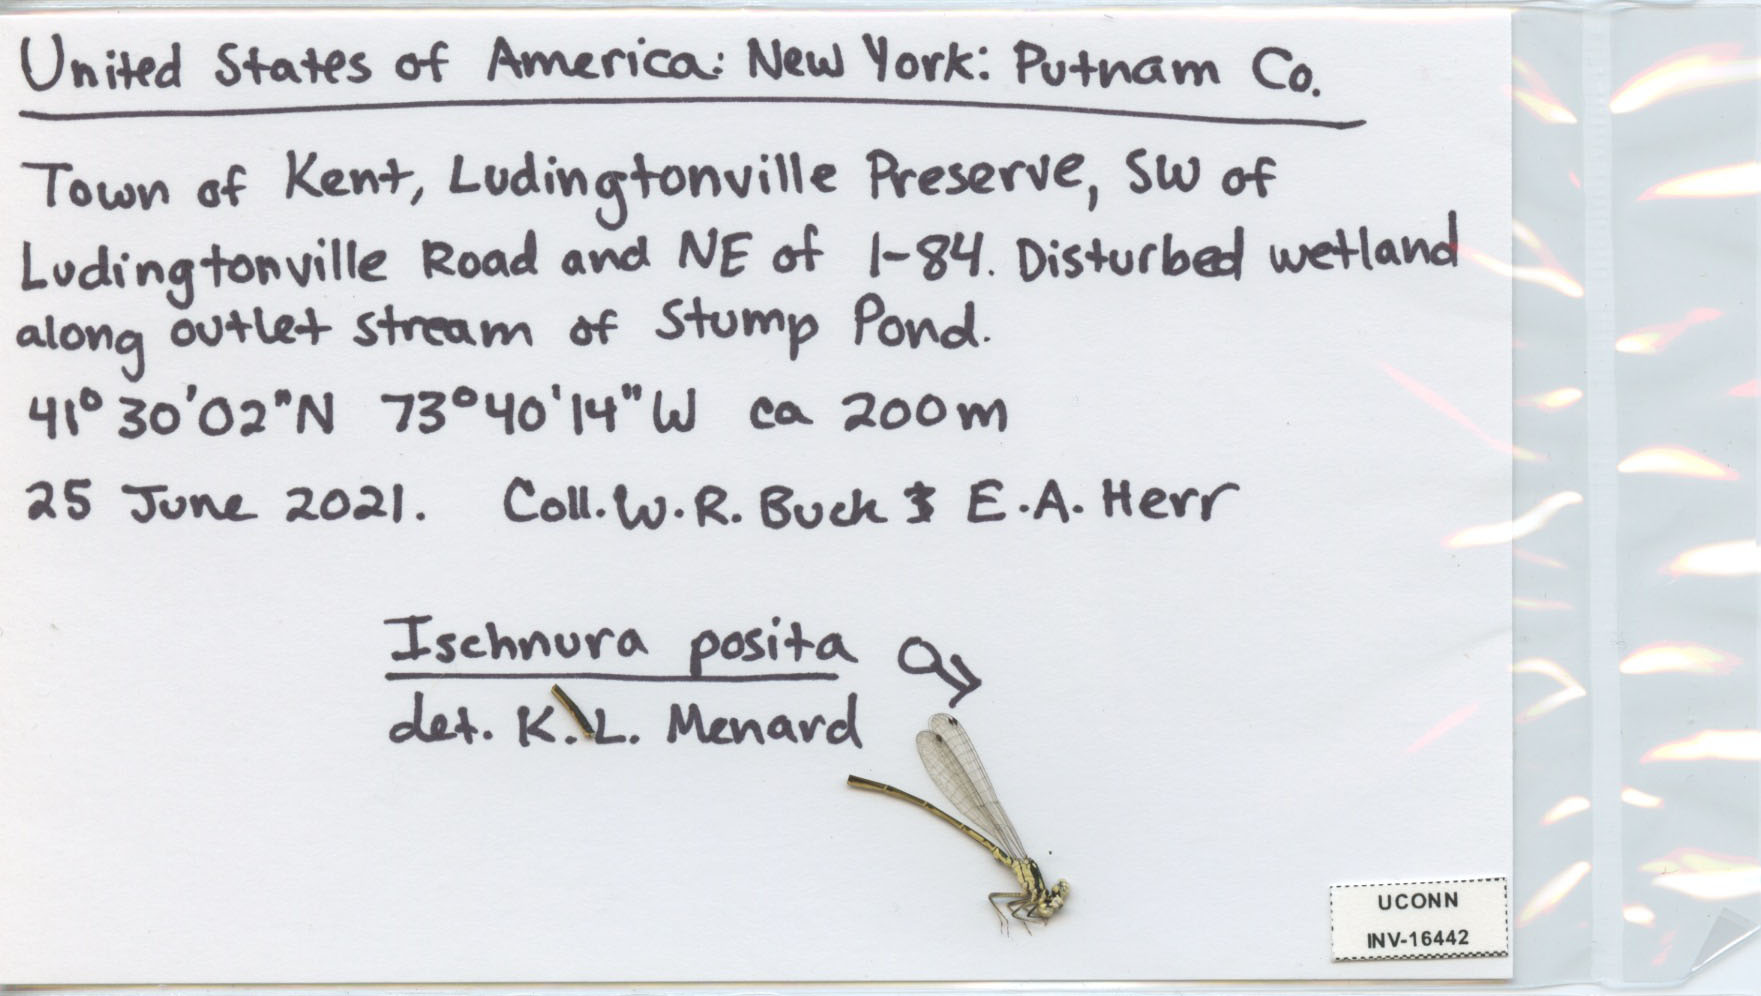 United States of America: New York: Putnam Co.
Town of Kent, Ludingtonville Preserve, SW of
Ludingtonville Road and NE of I-84. Disturbed wetland
along outlet stream of Stump Pond.
41° 30'02"N 73°40'14"W ca 200m
25 June 2021. Coll. W.R. Buck & E.A. Herr
Ischnura posita ♂
det. K.L. Menard
UCONN
INV-16442